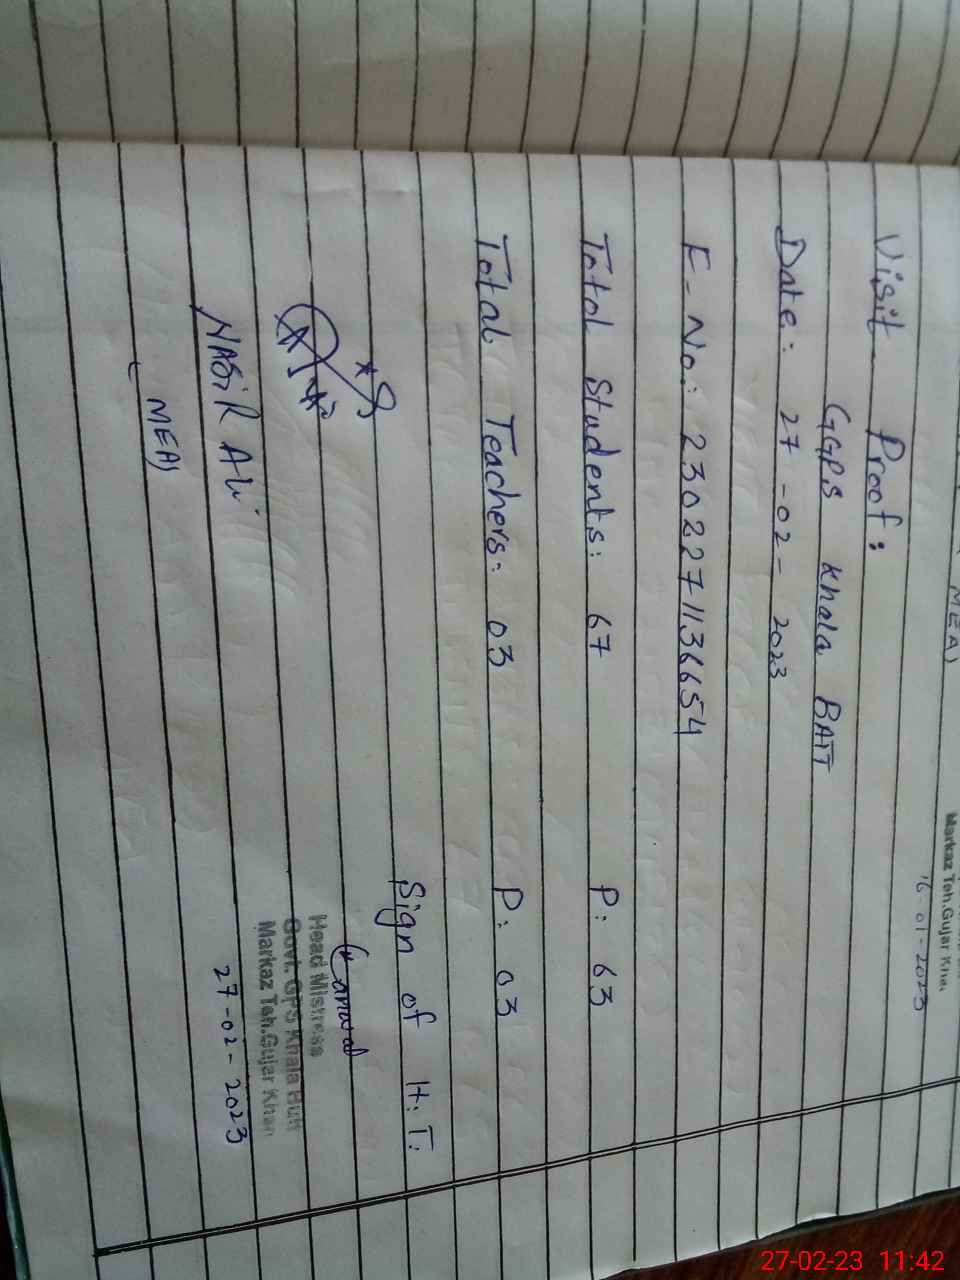 MEA)
Markaz Teh.Gujar Khan
16-01-2023
Visit Proof:
GGPS Khala BATT
Date: 27-02-2023
E-No: 230227113 6654
Total Students: 67 P: 63
Total Teachers: 03 P: 03
Sign of H.T.
Kanwal
Head Mistress
Govt. GPS Khala Butt
Markaz Teh.Gujar Khan
NASIR Ali
27-02-2023
(MEA)
27-02-23 11:42